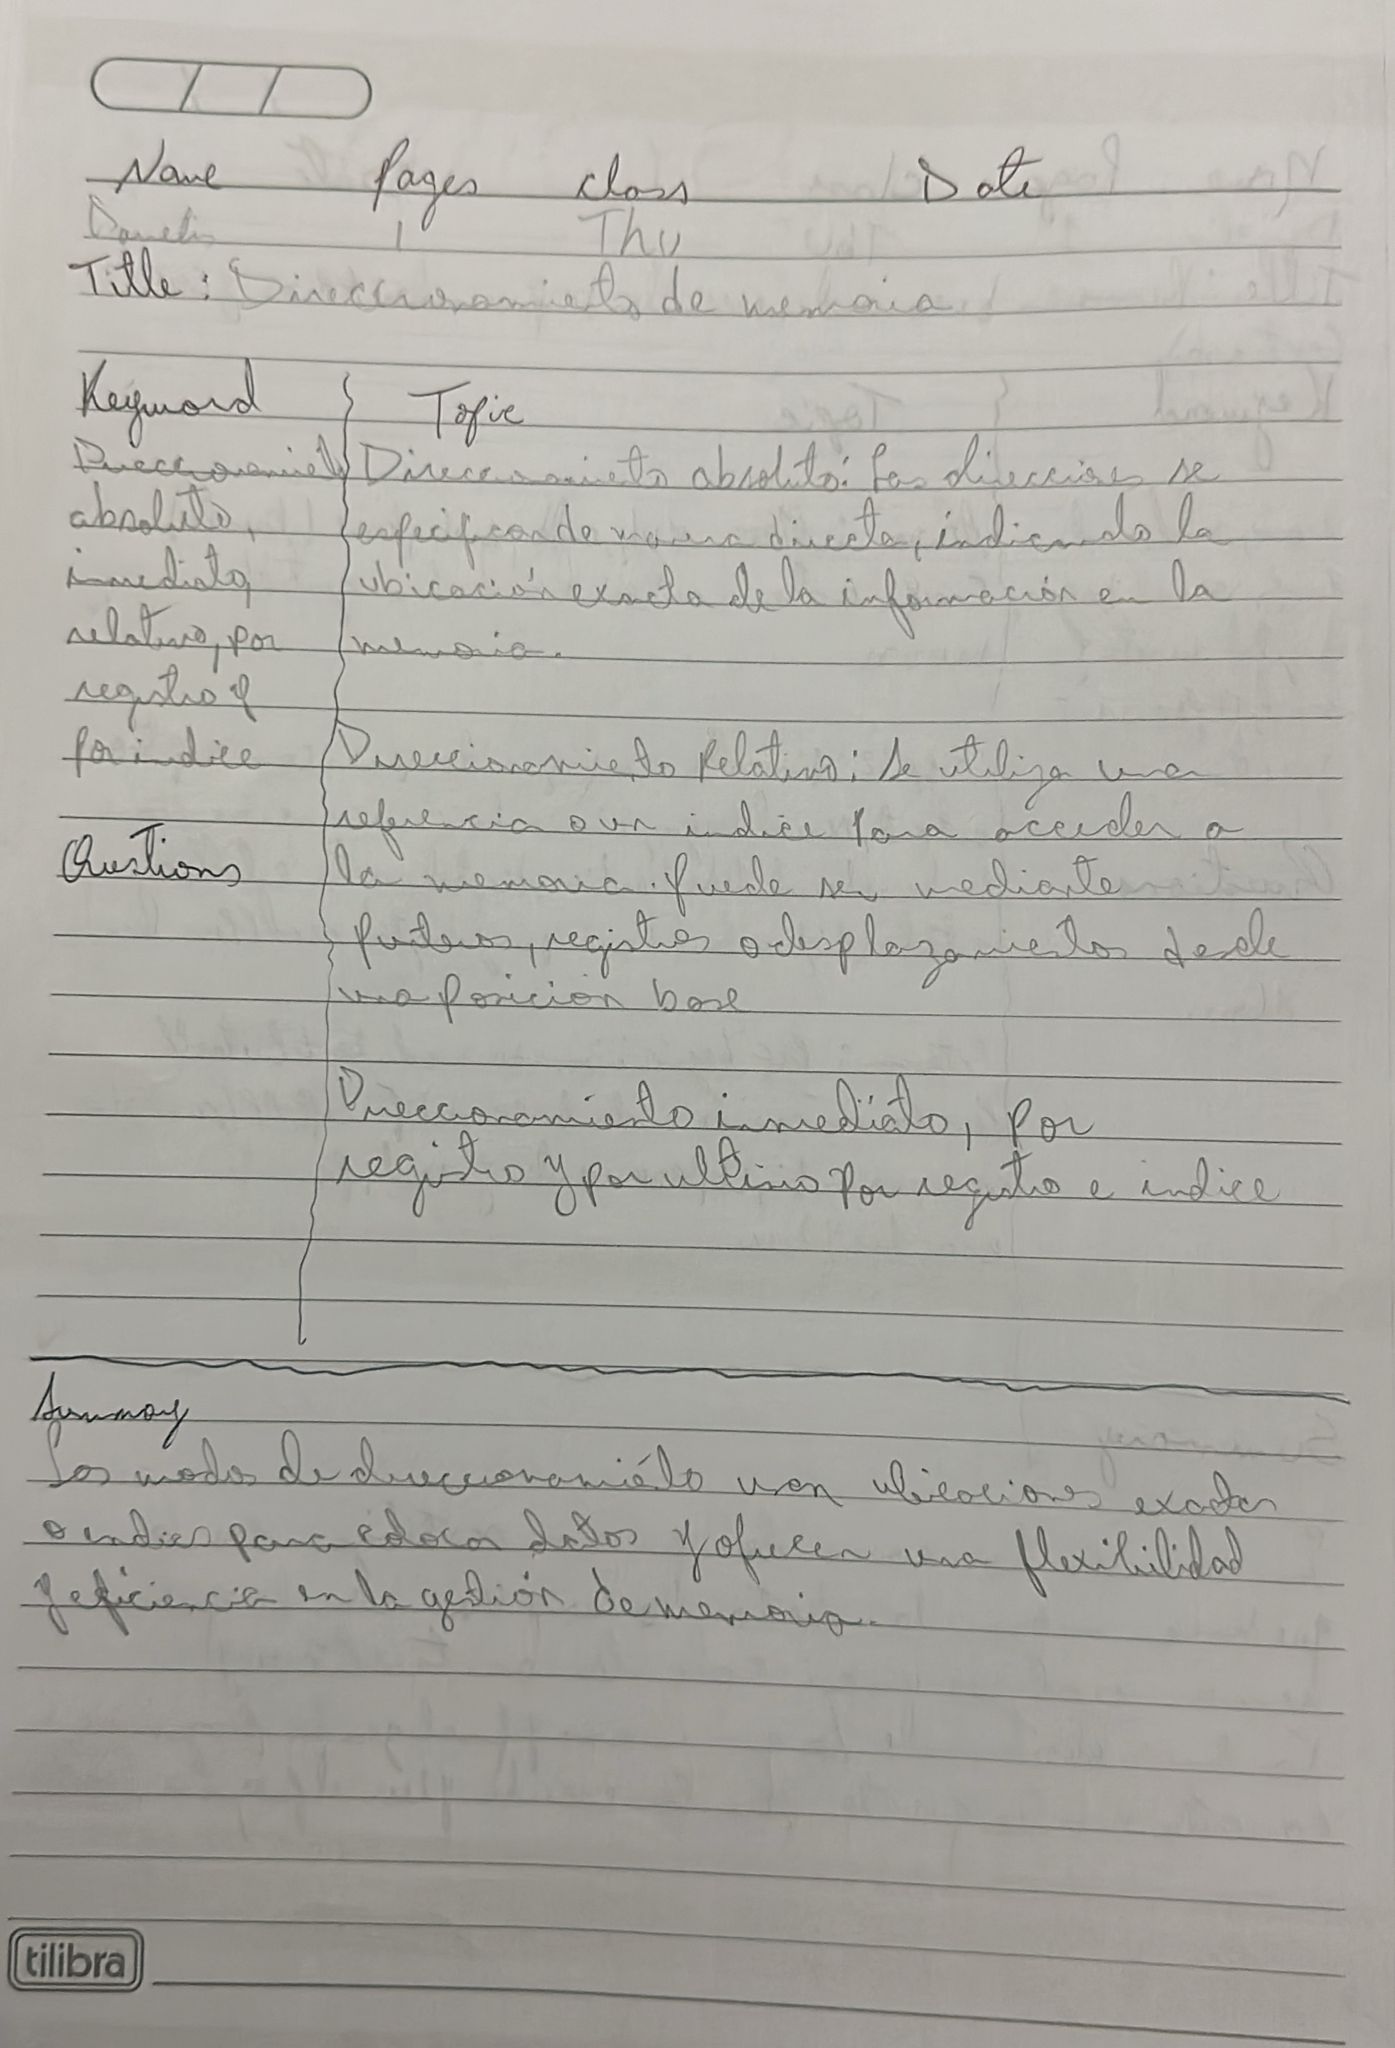 Name Pages Class Date
1 Thu
Title: Direccionamiento de memoria.
Keyword Topic
Direccionamiento
absoluto,
inmediato,
relativo, por
registro y
por indice
Direccionamieto absoluto: Las direcciones se
especifican de manera directa, indicando la
ubicación exacta de la información en la
memoria.
Direccionamiento Relativo: Se utiliza una
referencia o un indice para acceder a
la memoria. Puede ser mediante
punteros, registros o desplazamientos desde
una posición base
Direccionamiento inmediato, por
registro y por ultimo por registro e indice
Questions
Summary
Los modos de direccionamiéto usan ubicaciones exactas
o indices para datos y ofrecen una flexibilidad
y eficiencia en la gestión de memoria.
tilibra